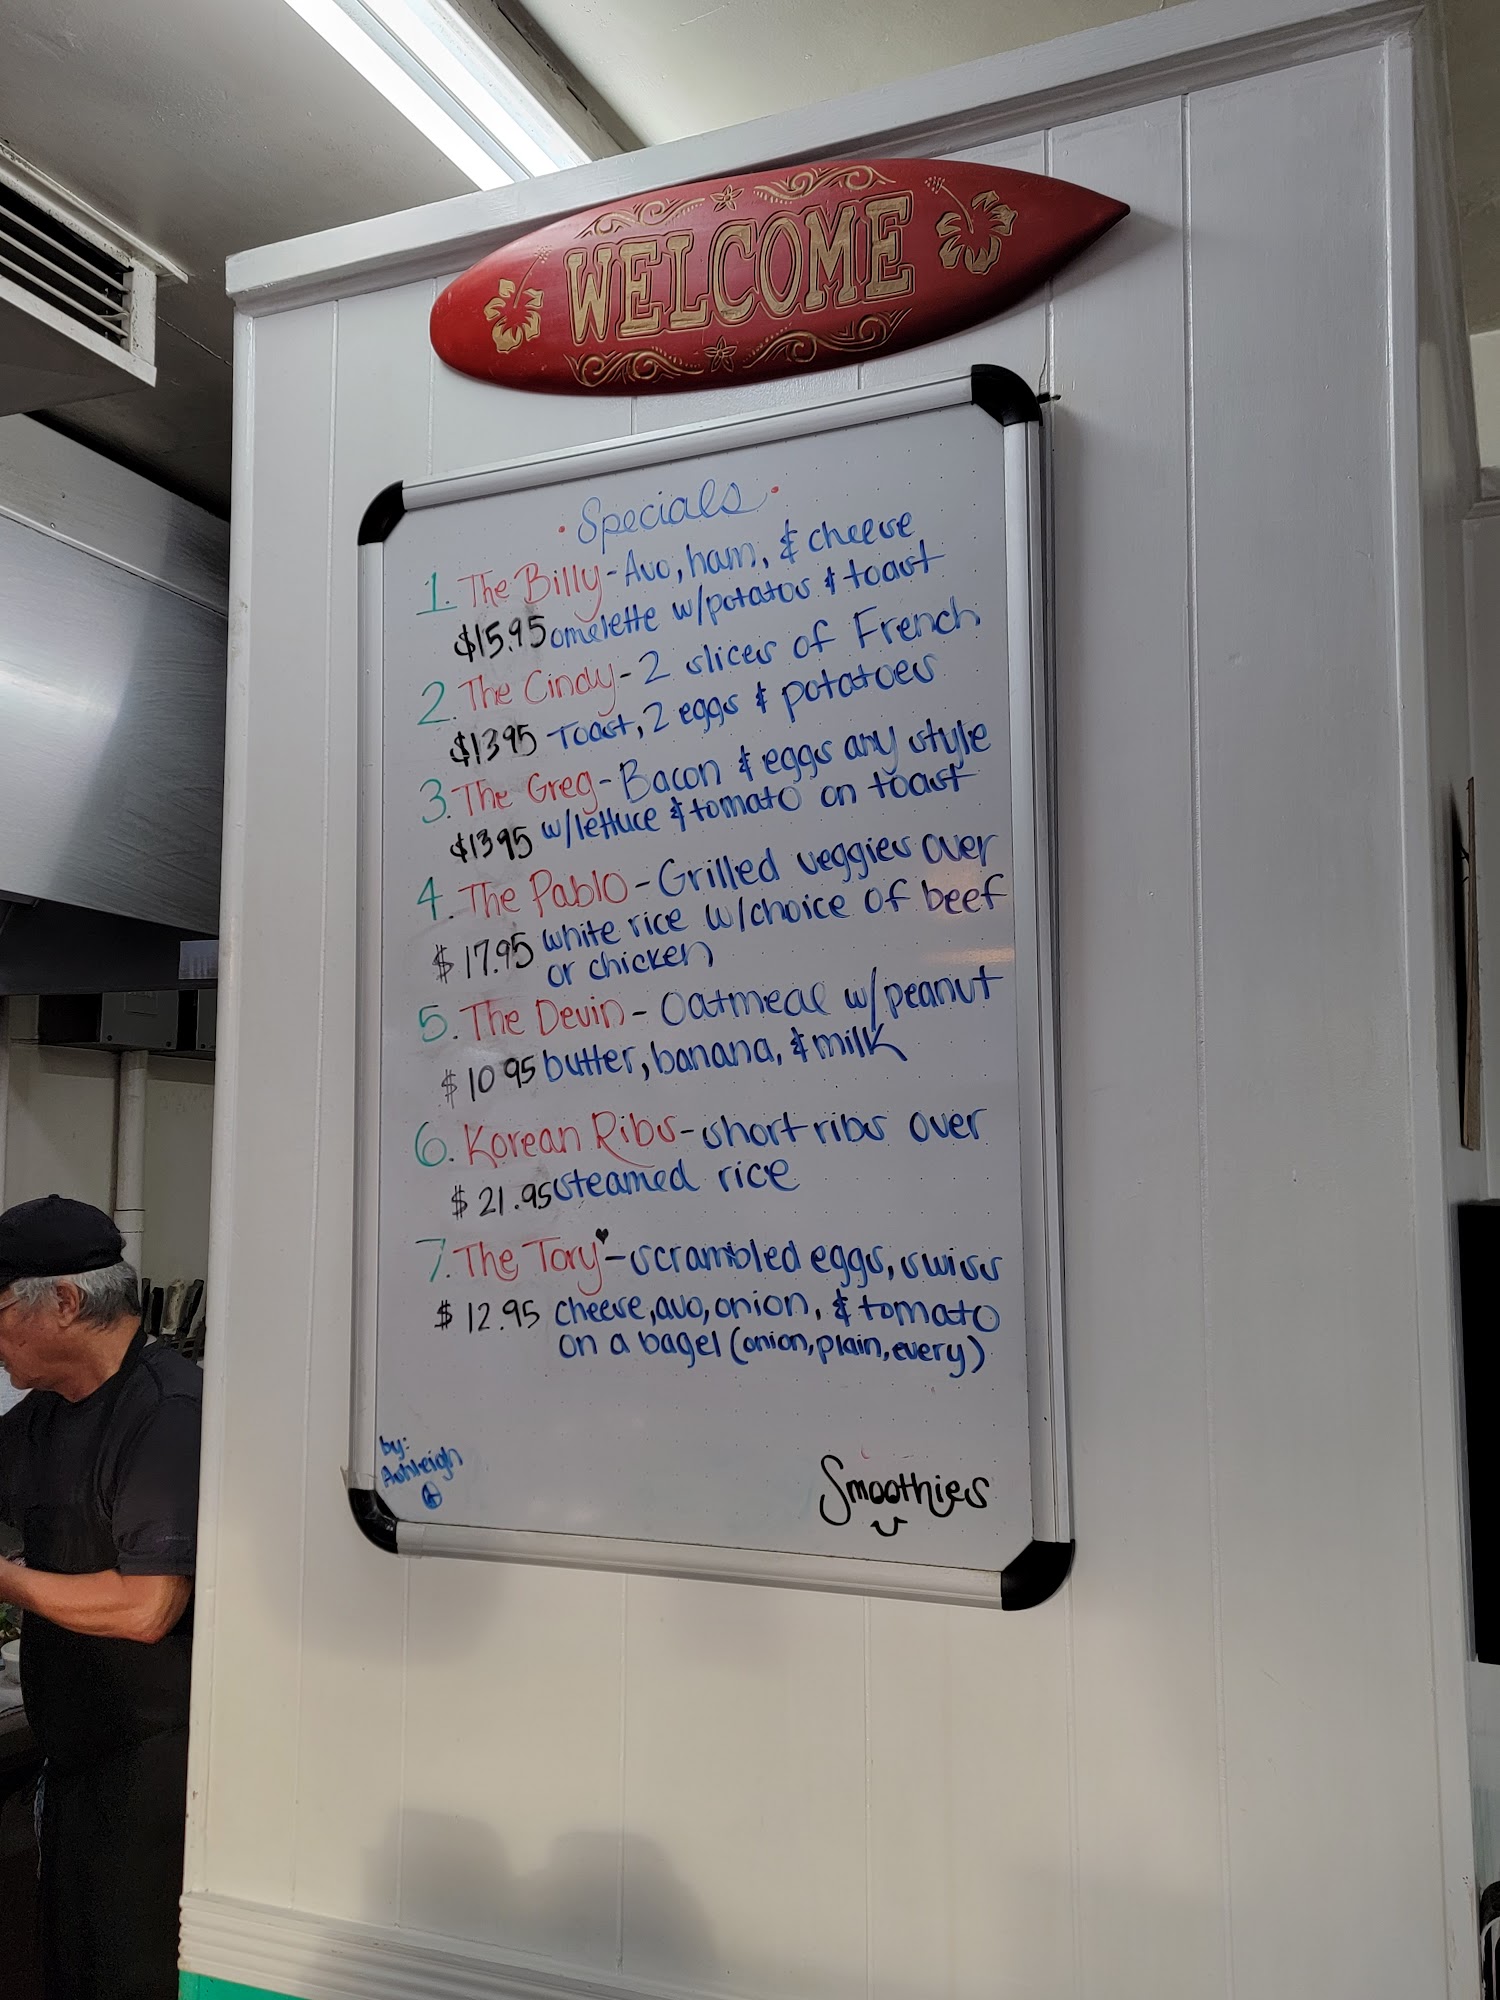 WELCOME
· Specials ·
1. The Billy - Avo, ham, & cheese
$15.95 omelette w/potatos & toast
2. The Cindy - 2 slices of French
$1395 Toast, 2 eggs & potatoes
3. The Greg - Bacon & eggs any style
$1395 w/lettuce & tomato on toast
4. The Pablo - Grilled veggies over
$17.95 white rice w/choice of beef
or chicken
5. The Devin - Oatmeal w/peanut
$10 95 butter, banana, & milk
6. Korean Ribs - short ribs over
$21.95 steamed rice
7. The Tory♥ - scrambled eggs, swiss
$12.95 cheese, avo, onion, & tomato
on a bagel (onion, plain, every)
by:
Ashleigh
A
Smoothies